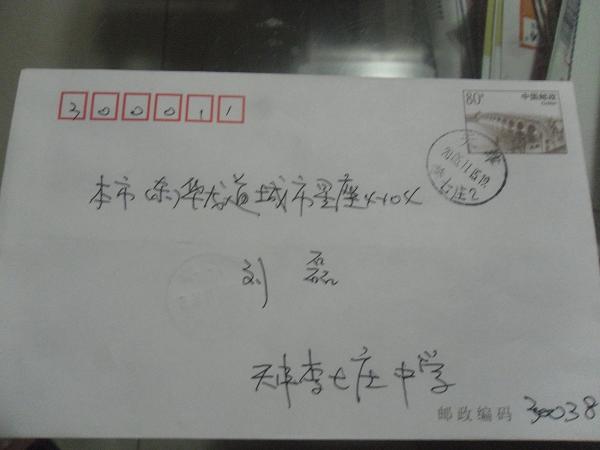 300011
80分 中国邮政
CHINA
天津
李七庄2
本市(东)华龙道城市星座4-104
刘磊
天津李七庄中学
邮政编码 30038